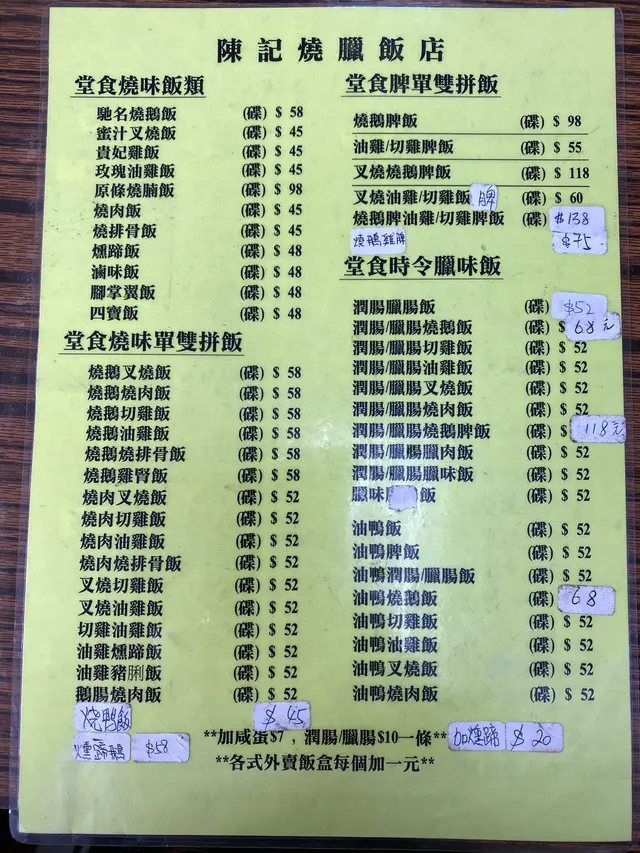 陳記燒臘飯店
堂食燒味飯類
馳名燒鵝飯 (碟) $ 58
蜜汁叉燒飯 (碟) $ 45
貴妃雞飯 (碟) $ 45
玫瑰油雞飯 (碟) $ 45
原條燒腩飯 (碟) $ 98
燒肉飯 (碟) $ 45
燒排骨飯 (碟) $ 45
燻蹄飯 (碟) $ 48
滷味飯 (碟) $ 48
腳掌翼飯 (碟) $ 48
四寶飯 (碟) $ 48
堂食燒味單雙拼飯
燒鵝叉燒飯 (碟) $ 58
燒鵝燒肉飯 (碟) $ 58
燒鵝切雞飯 (碟) $ 58
燒鵝油雞飯 (碟) $ 58
燒鵝燒排骨飯 (碟) $ 58
燒鵝雞腎飯 (碟) $ 58
燒肉叉燒飯 (碟) $ 52
燒肉切雞飯 (碟) $ 52
燒肉油雞飯 (碟) $ 52
燒肉燒排骨飯 (碟) $ 52
叉燒切雞飯 (碟) $ 52
叉燒油雞飯 (碟) $ 52
切雞油雞飯 (碟) $ 52
油雞燻蹄飯 (碟) $ 52
油雞豬脷飯 (碟) $ 52
鵝腸燒肉飯 (碟) $ 52
烧鸭飯 $ 45
燻蹄鵝 $58
堂食脾單雙拼飯
燒鵝脾飯 (碟) $ 98
油雞/切雞脾飯 (碟) $ 55
叉燒燒鵝脾飯 (碟) $ 118
叉燒油雞/切雞飯脾 (碟) $ 60
燒鵝脾油雞/切雞脾飯 (碟) $138
燒鵝雞脾 $75
堂食時令臘味飯
潤腸臘腸飯 (碟) $52
潤腸/臘腸燒鵝飯 (碟) $ 68元
潤腸/臘腸切雞飯 (碟) $ 52
潤腸/臘腸油雞飯 (碟) $ 52
潤腸/臘腸叉燒飯 (碟) $ 52
潤腸/臘腸燒肉飯 (碟) $ 52
潤腸/臘腸燒鵝脾飯 (碟) $ 118元
潤腸/臘腸臘肉飯 (碟) $ 52
潤腸/臘腸臘味飯 (碟) $ 52
臘味飯 (碟) $ 52
油鴨飯 (碟) $ 52
油鴨脾飯 (碟) $ 52
油鴨潤腸/臘腸飯 (碟) $ 52
油鴨燒鵝飯 (碟) 68
油鴨切雞飯 (碟) $ 52
油鴨油雞飯 (碟) $ 52
油鴨叉燒飯 (碟) $ 52
油鴨燒肉飯 (碟) $ 52
**加咸蛋$7，潤腸/臘腸$10一條** 加燻蹄 $ 20
**各式外賣飯盒每個加一元**